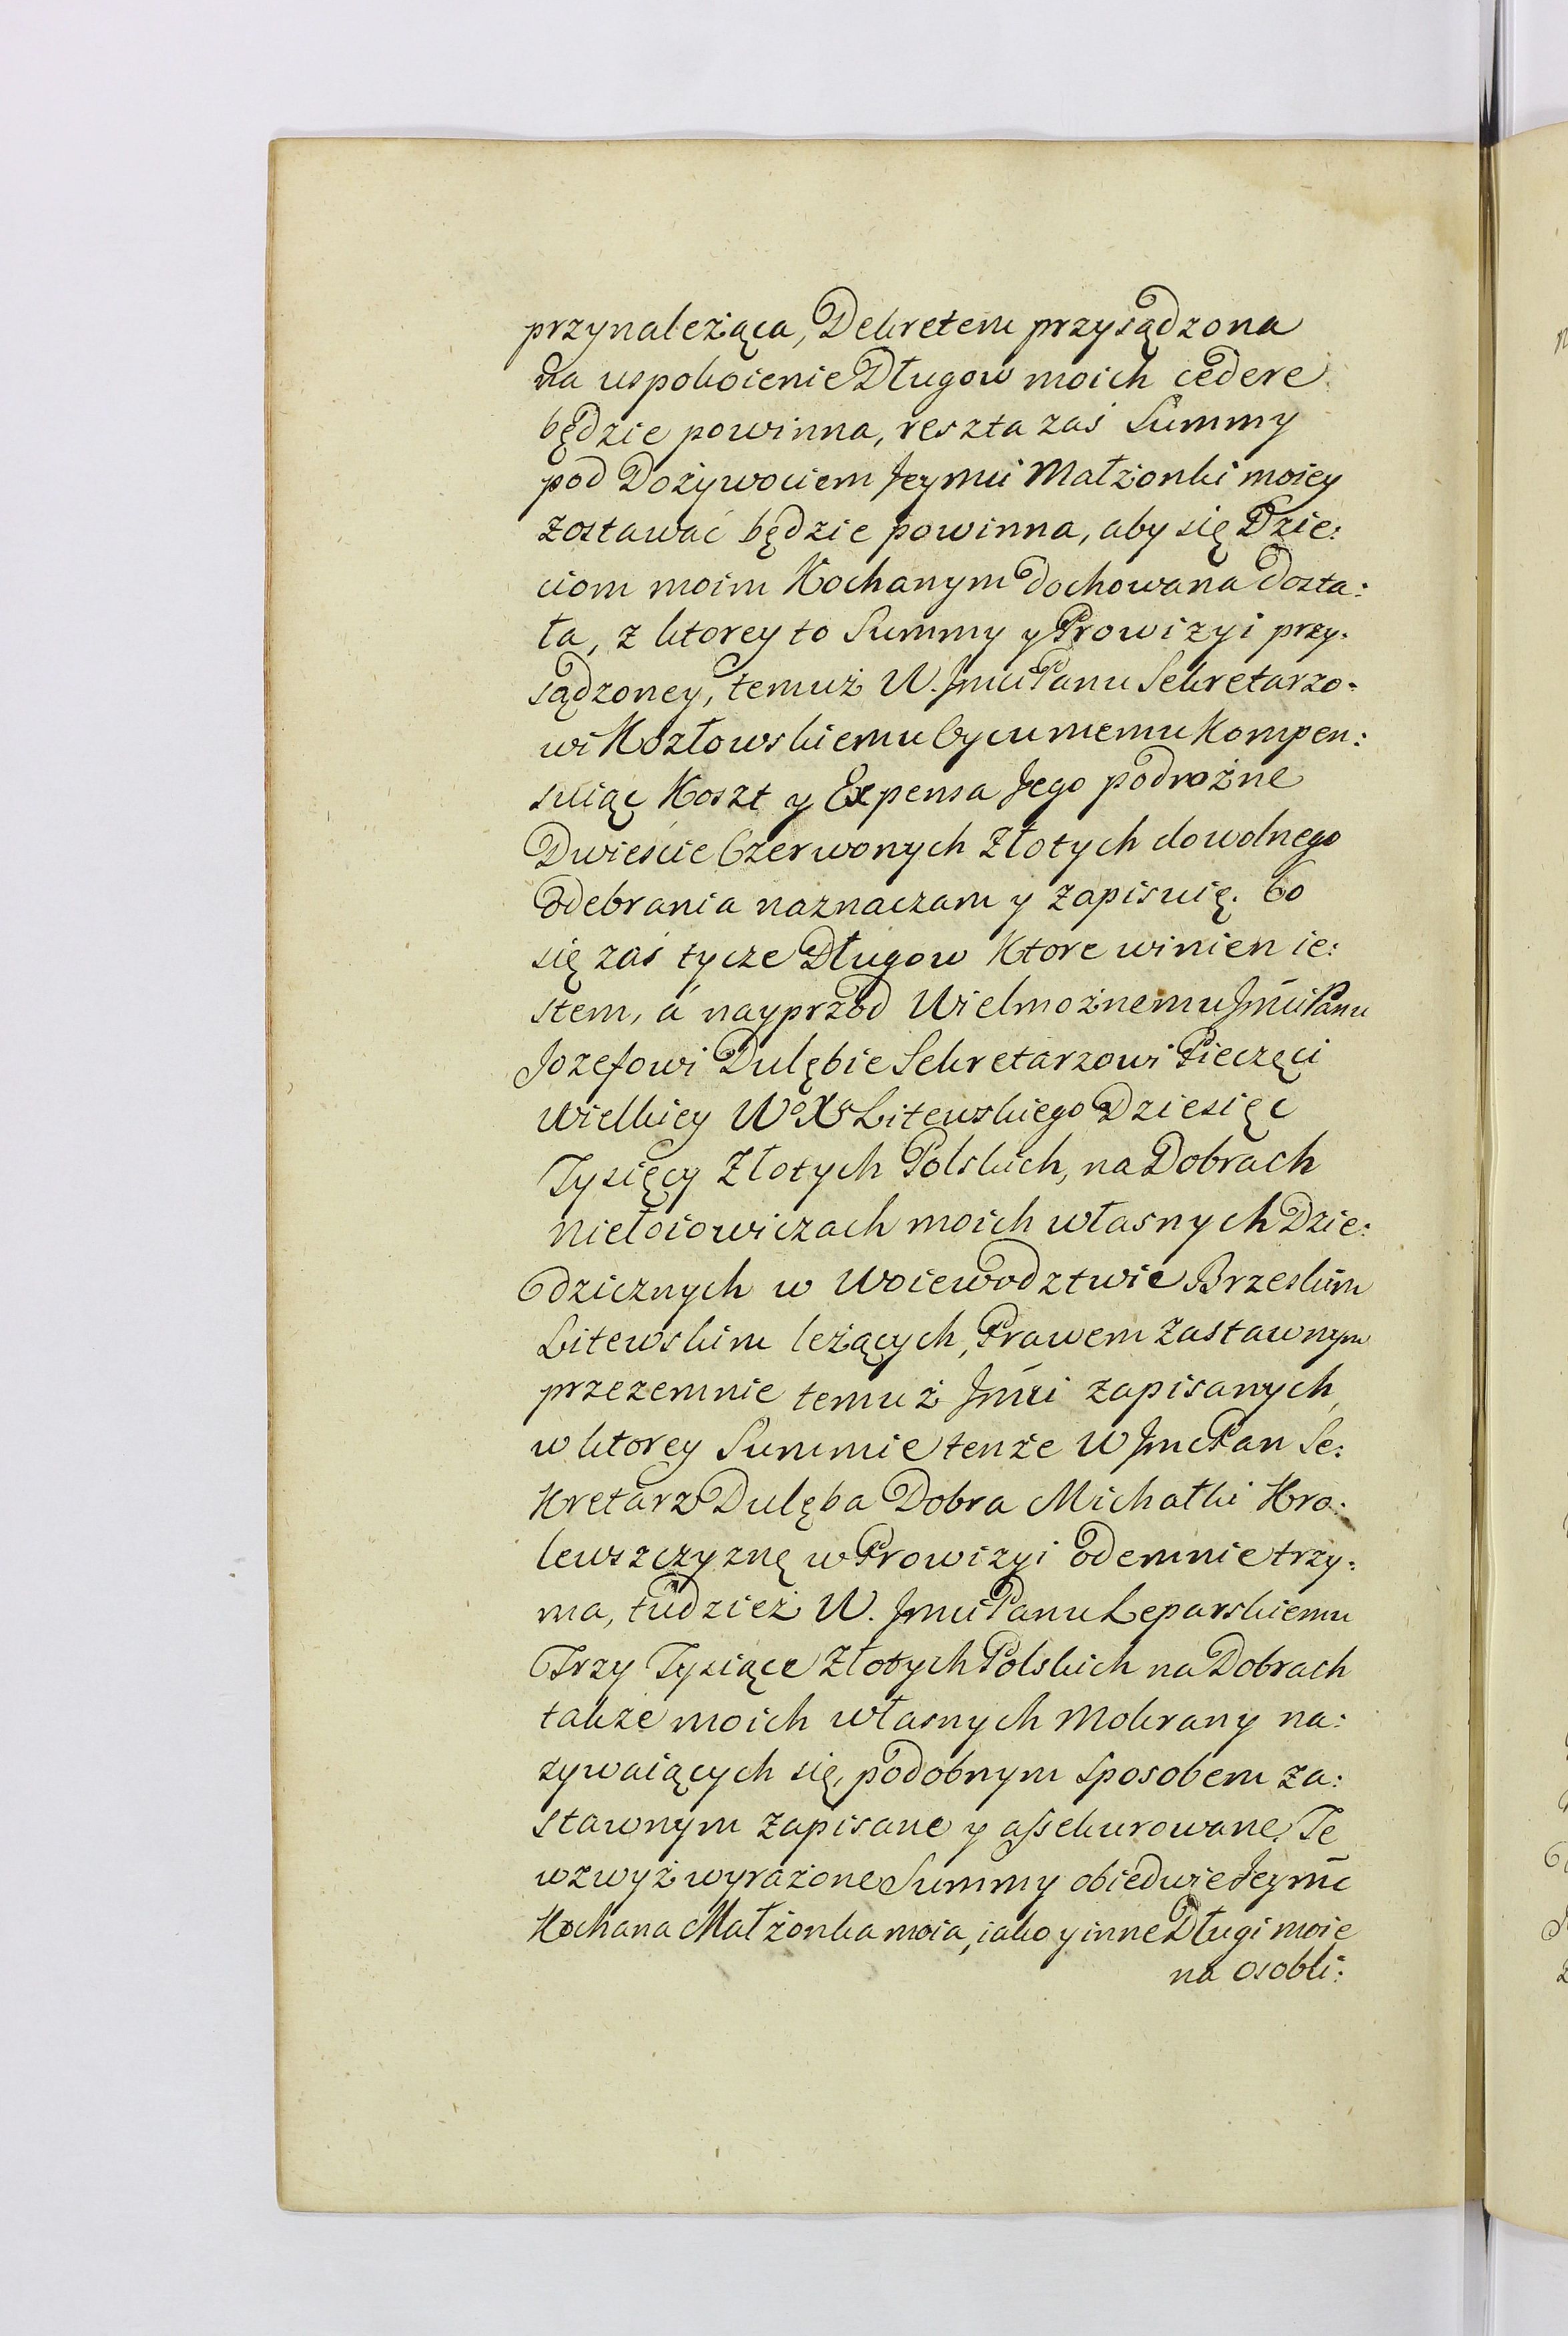 przynależąca, Dekretem przysądzona
na uspokoienie Długow moich cedere
będzie powinna, reszta zaś Summy
pod Dożywociem Jeymci Małżonki moiey
zostawać będzie powinna, aby się Dzie:
ciom moim Kochanym dochowana dosta:
ła, z ktorey to Summy y Prowizyi przy:
sądzoney, temuż W. Jmci Panu Sekretarzo:
wi Kozłowskiemu Oycu memu kompen:
suiąc Koszt y Expensa Jego podrożne
Dwieście Czerwonych Złotych dowolnego
odebrania naznaczam y zapisuię. Co
się zaś tycze Długow Ktore winien ie:
stem, á nayprzod Wielmożnemu Jmći Panu
Jozefowi Dulębie Sekretarzowi Pieczęci
Wielkiey Wo Xa Litewskiego Dziesięc
Tysięcy Złotych Polskich, na Dobrach
Niełoiowiczach moich własnych Dzie:
dzicznych w Woiewodztwie Brzeskim
Litewskim leżących, Prawem zastawnym
przezemnie temuż Jmći zapisanych,
w ktorey Summie tenże W Jmc Pan Se:
kretarz Dulęba Dobra Michałki Kro:
lewszczyznę w Prowizyi odemnie trzy:
ma, tudzież W. Jmci Panu Leparskiemu
Trzy Tysiące Złotych Polskich na Dobrach
także moich własnych Mokrany na:
zywaiących się, podobnym sposobem za:
stawnym zapisane y assekurowane. Te
wzwyż wyrażone Summy obiedwie Jeymć
Kochana Małżonka moia, iako y inne Długi moie
na osobli: